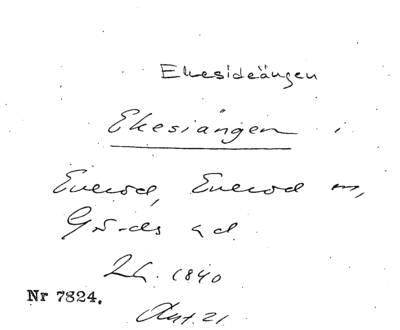 Ekesideängen
Ekesiängen i
Everöd, Everöd sn,
Gärds hd
1840
Nr 7824.
Akt. 21.